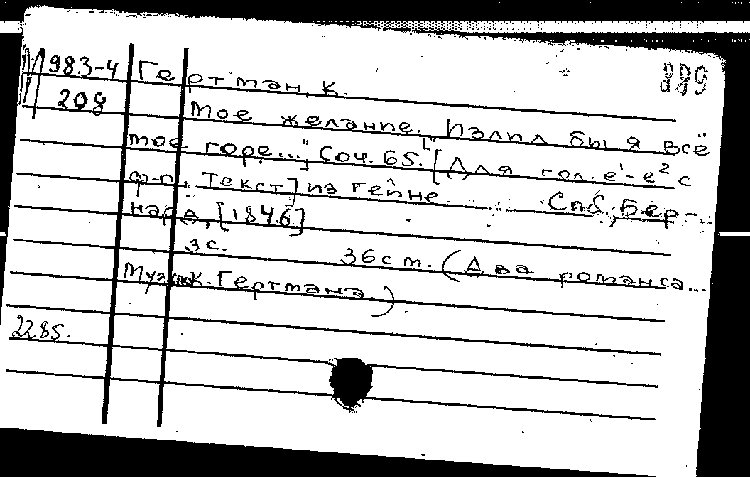 М983-4 Гертман, К. 889
208 Мое желание. "Излил бы я всё
мое горе..." Соч. 65. [Для гол. e¹-e² с
ф-п. Текст] из Гейне. Спб., Бер-
нард, [1846]
3с. 36 см. (Два романса...
Муз. К. Гертмана.)
2285.